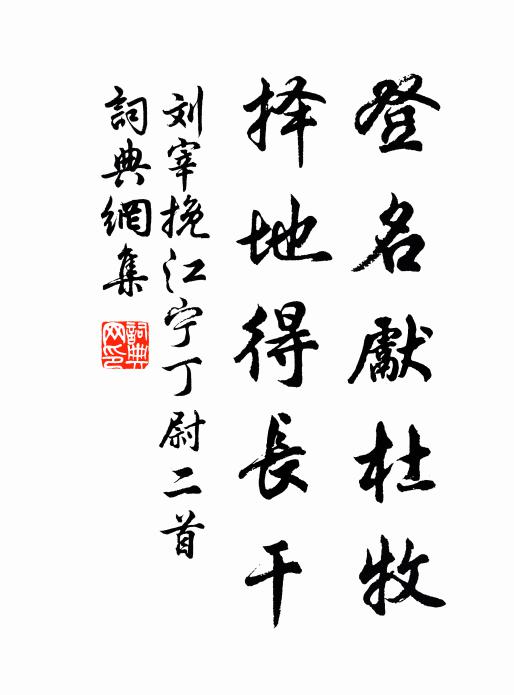 登名獻杜牧
择地得長干
刘宰挽江宁丁尉二首
詞典網集
詞典网印